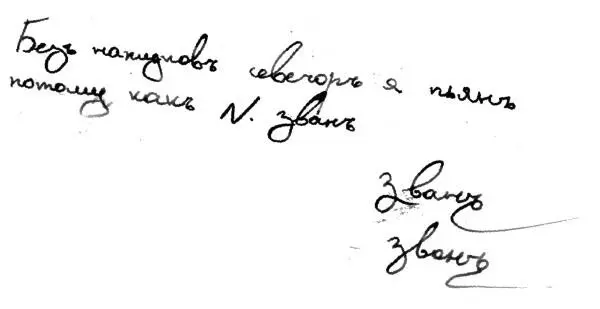 Безъ напитковъ севечоръ я пьянъ
потому какъ N. званъ
Званъ
званъ